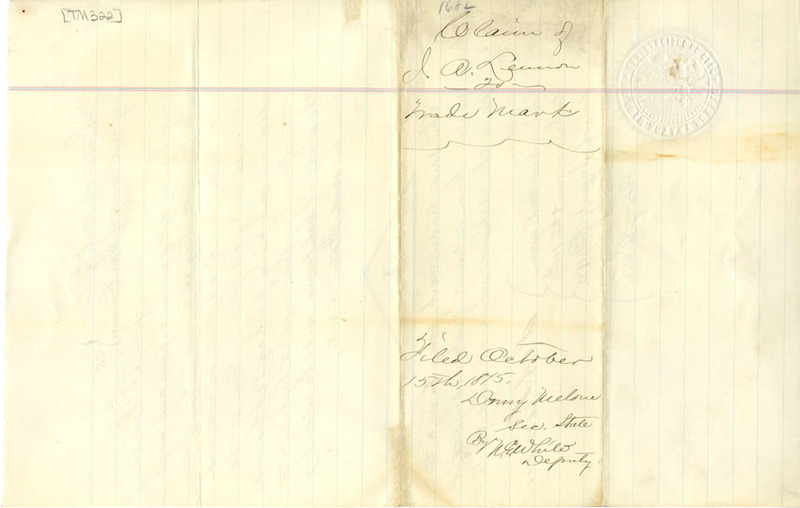 [TM322]
1602
Claim of
J. A. Lennon
to
Trade Mark
Filed October
15th, 1875.
Drury Melone
Sec. State
By
White
Deputy